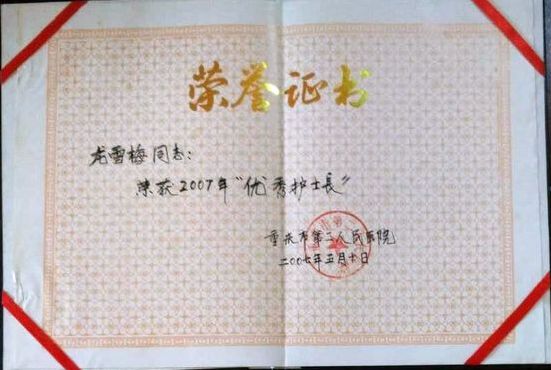 荣誉证书
龙雪梅同志：
荣获2007年“优秀护士長”
重庆市第三人民医院
二00七年五月十日